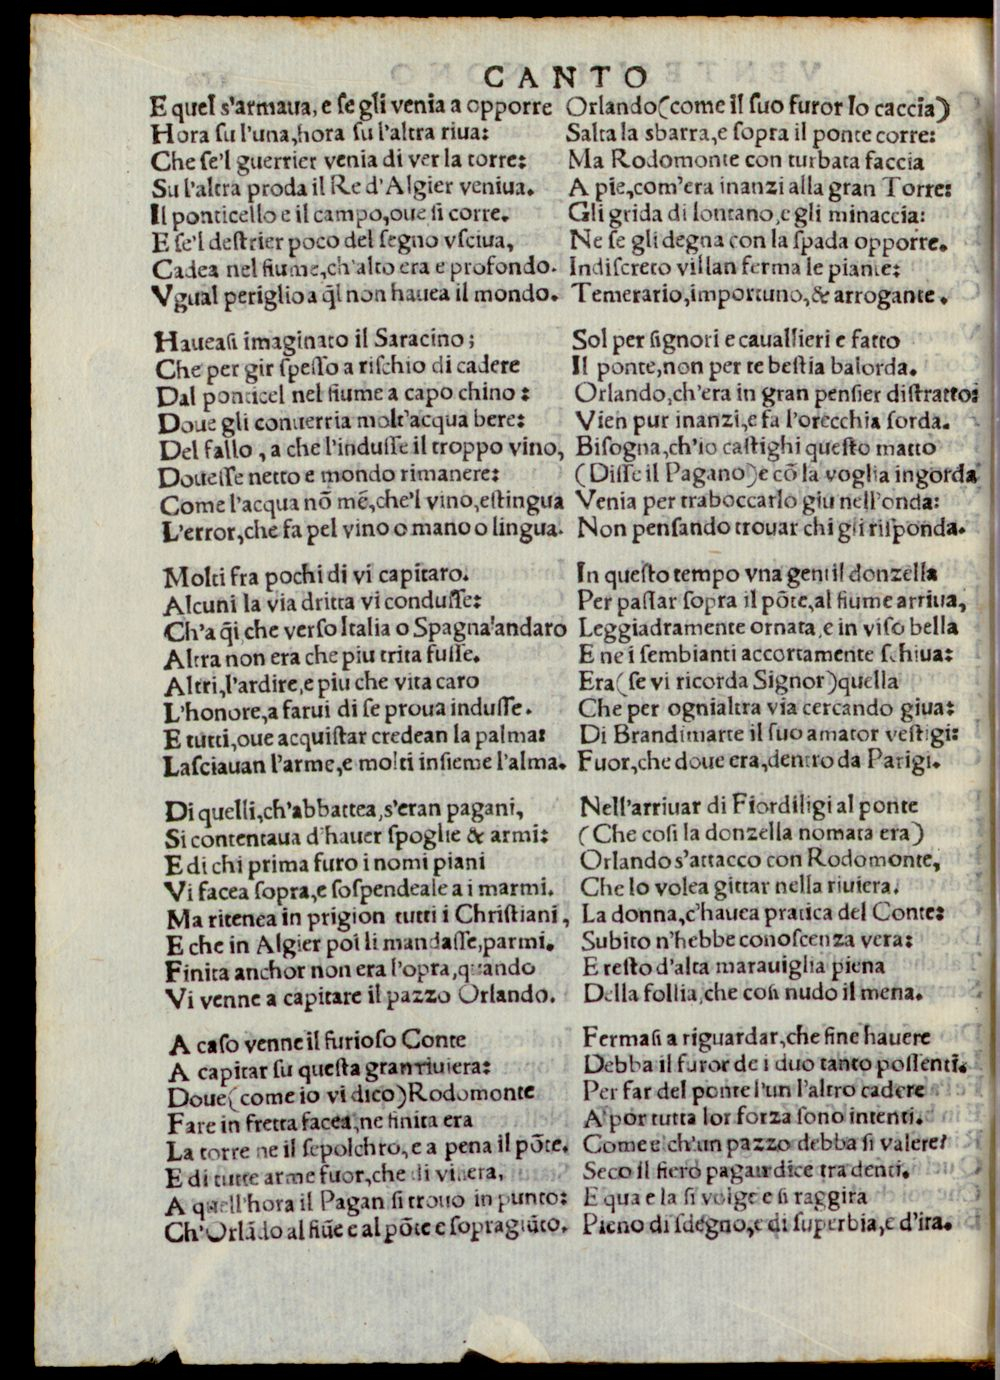 CANTO
E quel s'armaua, e se gli venia a opporre
Hora su l'una, hora su l'altra riua:
Che se'l guerrier venia di ver la torre:
Su l'altra proda il Re d'Algier veniua.
Il ponticello e il campo, oue si corre.
E se'l destrier poco del segno vsciua,
Cadea nel fiume, ch'alto era e profondo.
Vgual periglio a q̃l non hauea il mondo.
Haueasi imaginato il Saracino;
Che per gir spesso a rischio di cadere
Dal ponticel nel fiume a capo chino:
Doue gli conuerria molt'acqua bere:
Del fallo, a che l'indusse il troppo vino,
Douesse netto e mondo rimanere:
Come l'acqua nō mē, che'l vino, estingua
L'error, che fa pel vino o mano o lingua.
Molti fra pochi di vi capitaro.
Alcuni la via dritta vi condusse:
Ch'a q̃i che verso Italia o Spagna andaro
Altra non era che piu trita fusse.
Altri, l'ardire, e piu che vita caro
L'honore, a farui di se proua indusse.
E tutti, oue acquistar credean la palma:
Lasciauan l'arme, e molti insieme l'alma.
Di quelli, ch'abbattea, s'eran pagani,
Si contentaua d'hauer spoglie & armi:
E di chi prima furo i nomi piani
Vi facea sopra, e sospendeale a i marmi.
Ma ritenea in prigion tutti i Christiani,
E che in Algier poi li mandasse, parmi.
Finita anchor non era l'opra, quando
Vi venne a capitare il pazzo Orlando.
A caso venne il furioso Conte
A capitar su questa gran riuiera:
Doue (come io vi dico) Rodomonte
Fare in fretta facea, ne finita era
La torre ne il sepolchro, e a pena il pōte.
E di tutte arme fuor, che di visiera,
A quell'hora il Pagan si trouo in punto:
Ch'Orlādo al fiūe e al pōte e sopragiūto.
Orlando (come il suo furor lo caccia)
Salta la sbarra, e sopra il ponte corre:
Ma Rodomonte con turbata faccia
A pie, com'era inanzi alla gran Torre:
Gli grida di lontano, e gli minaccia:
Ne se gli degna con la spada opporre.
Indiscreto villan ferma le piante:
Temerario, importuno, & arrogante.
Sol per signori e cauallieri e fatto
Il ponte, non per te bestia balorda.
Orlando, ch'era in gran pensier distratto:
Vien pur inanzi, e fa l'orecchia sorda.
Bisogna, ch'io castighi questo matto
(Disse il Pagano) e cō la voglia ingorda
Venia per traboccarlo giu nell'onda:
Non pensando trouar chi gli risponda.
In questo tempo vna gentil donzella
Per passar sopra il pōte, al fiume arriua,
Leggiadramente ornata, e in viso bella
E ne i sembianti accortamente schiua:
Era (se vi ricorda Signor) quella
Che per ogni altra via cercando giua:
Di Brandimarte il suo amator vestigi:
Fuor, che doue era, dentro da Parigi.
Nell'arriuar di Fiordiligi al ponte
(Che cosi la donzella nomata era)
Orlando s'attacco con Rodomonte,
Che lo volea gittar nella riuiera.
La donna, c'hauea pratica del Conte:
Subito n'hebbe conoscenza vera:
E resto d'alta marauiglia piena
Della follia, che cosi nudo il mena.
Fermasi a riguardar, che fine hauere
Debba il furor de i duo tanto possenti.
Per far del ponte l'un l'altro cadere
A por tutta lor forza sono intenti.
Come e ch'un pazzo debba si valere?
Seco il fiero pagan dice tra denti.
E qua e la si volge e si raggira
Pieno di sdegno, e di superbia, e d'ira.